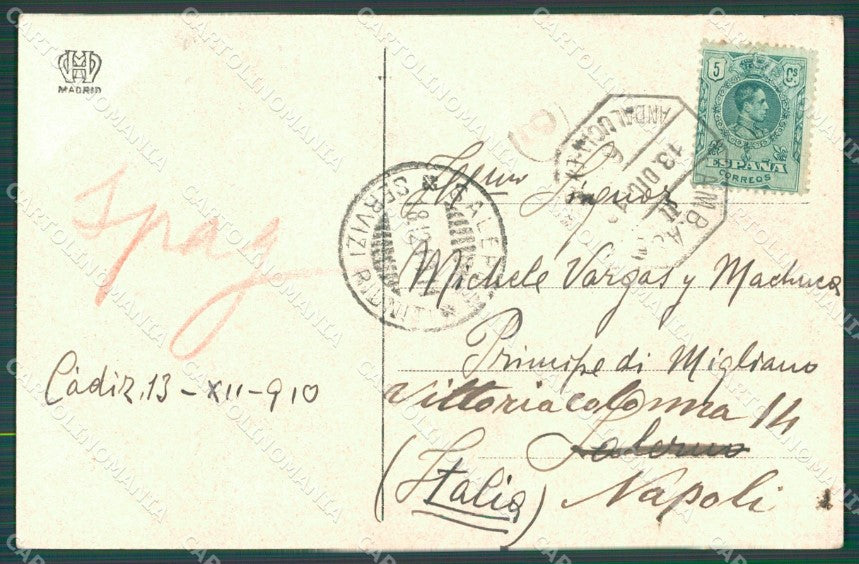 MADRID
Spag
Cádiz, 13 - XII - 910
5 Cs
ESPAÑA
CORREOS
AMB.
ANDALUCIA
13 DIC
SALERNO
SERVIZI RIDUZIONI
Signor
Michele Vargas y Machuca
Principe di Migliano
Vittoria colonna 14
Salerno
(Italia) Napoli
CARTOLINOMANIA